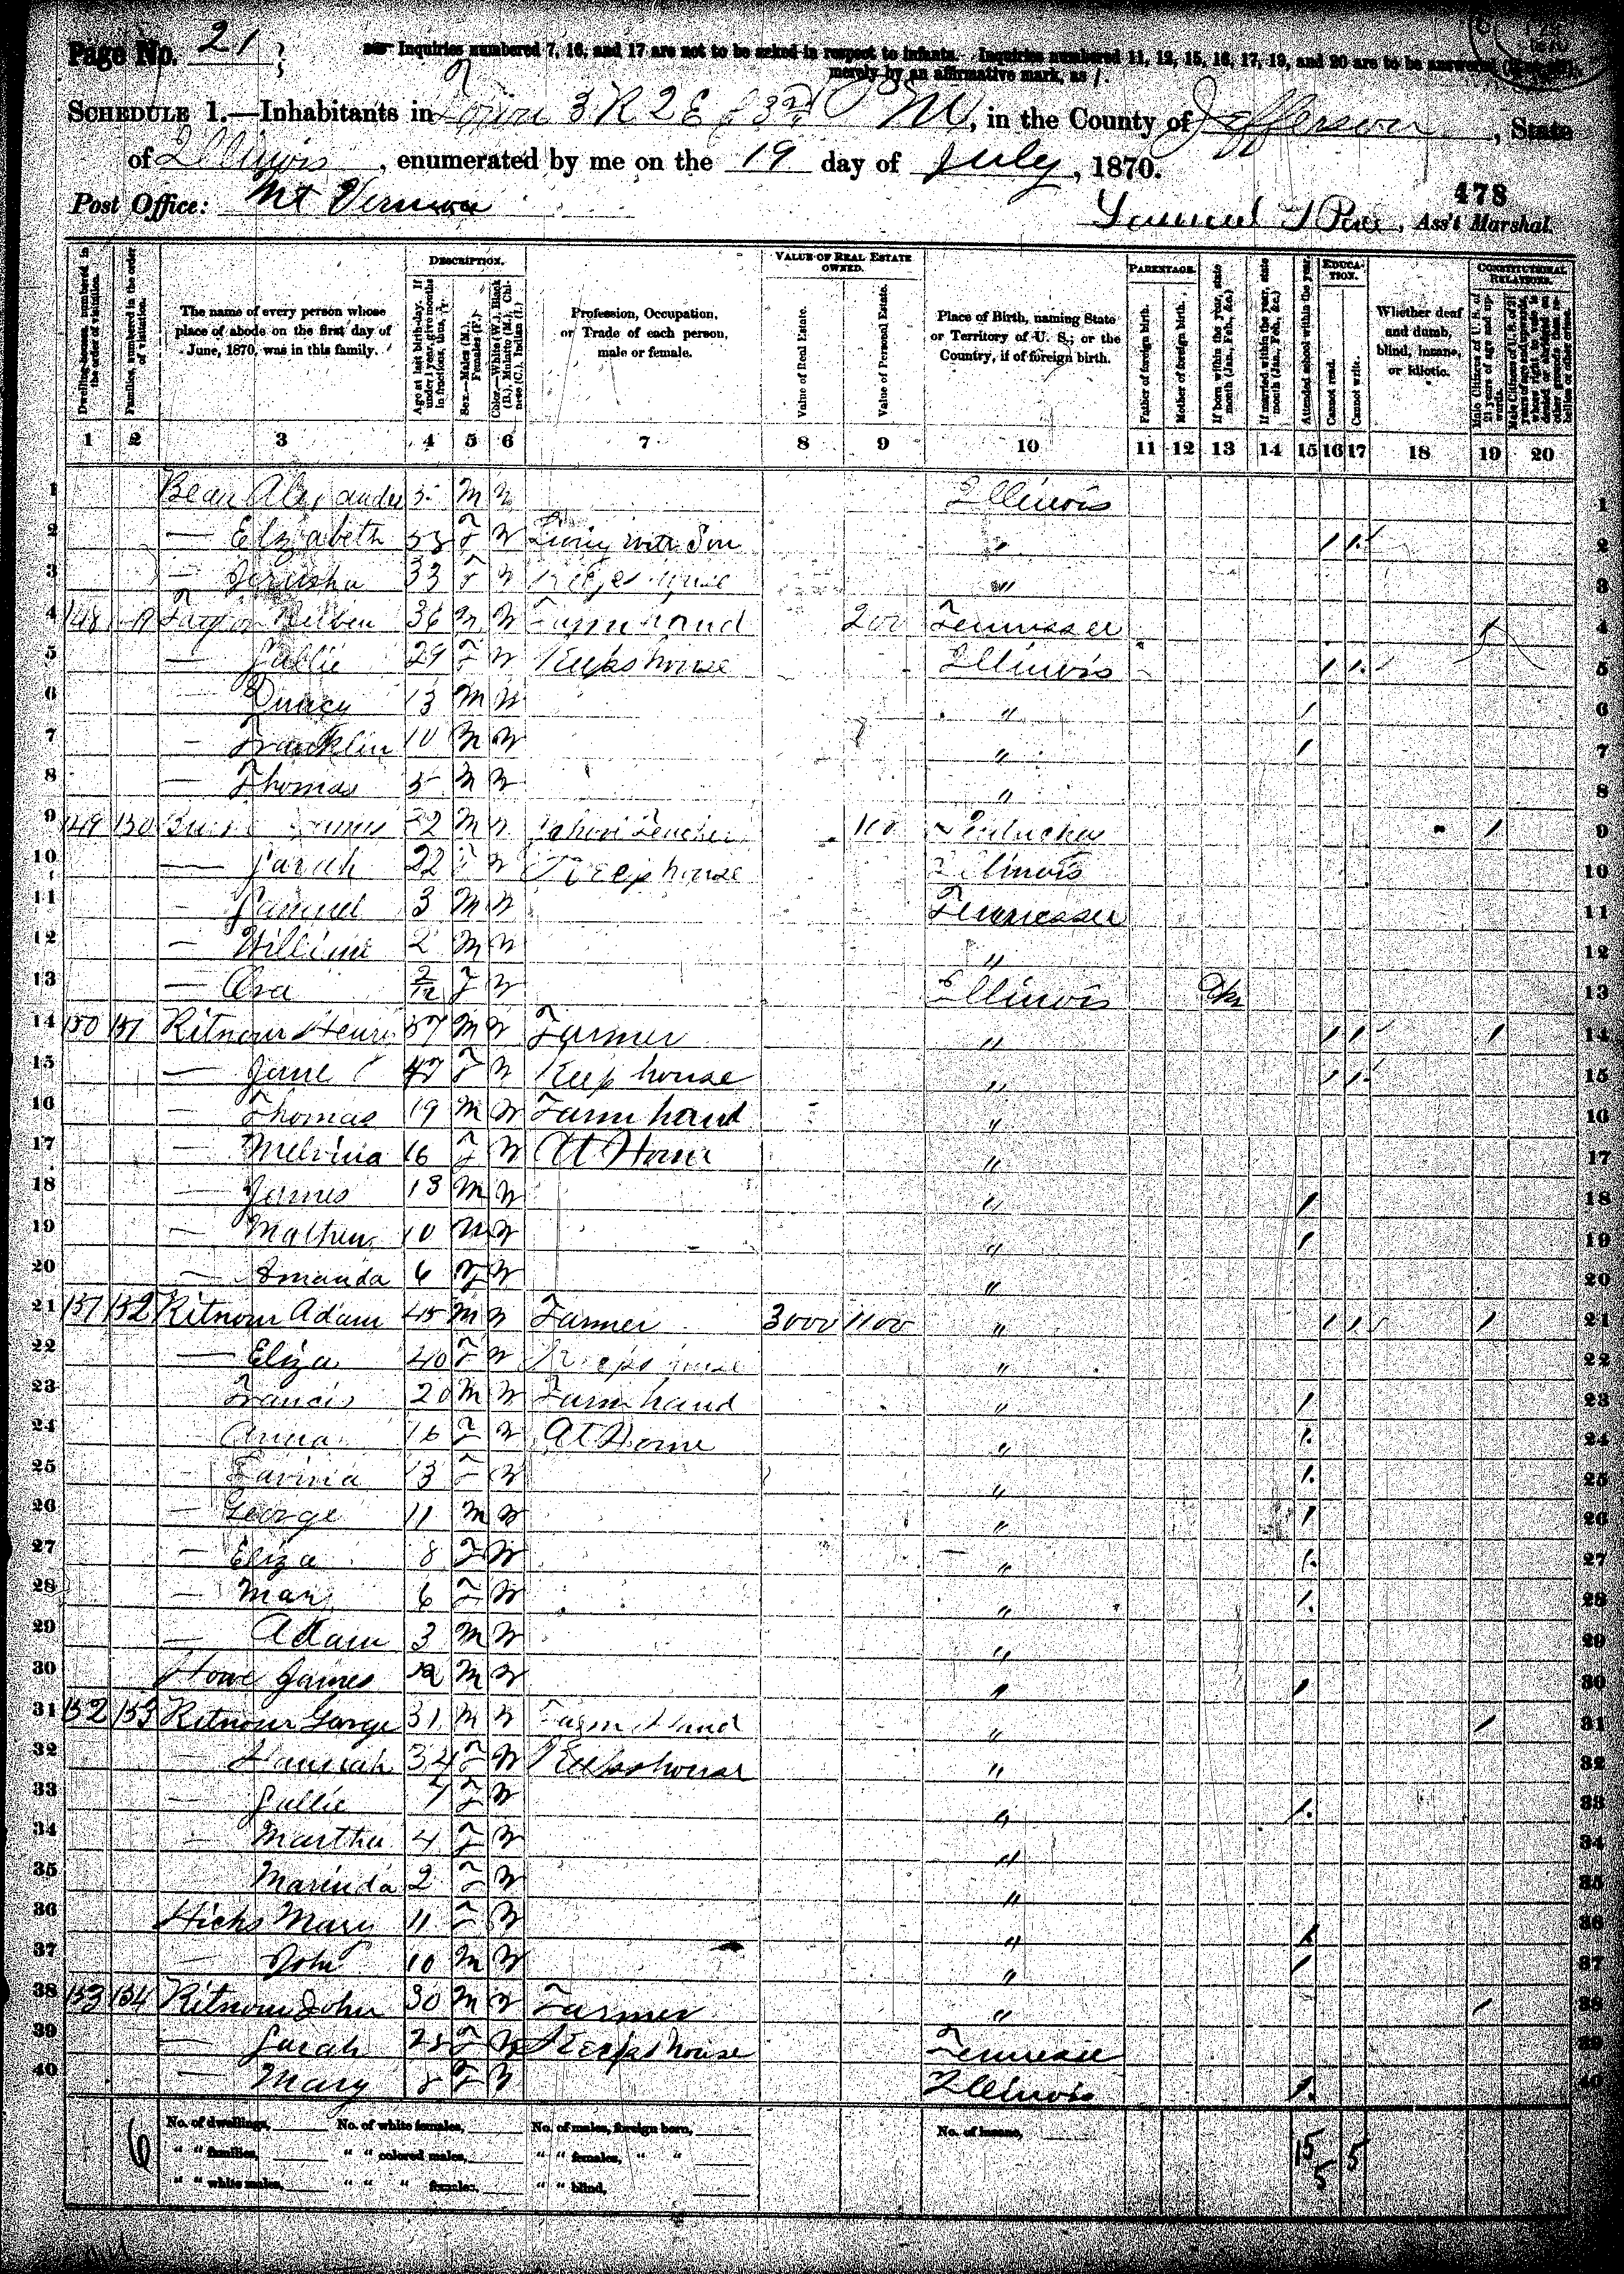 Page No. 21
Inquiries numbered 7, 16, and 17 are not to be asked in respect to infants. Inquiries numbered 11, 12, 15, 16, 17, 19, and 20 are to be answered
merely by an affirmative mark, as /.
SCHEDULE 1.—Inhabitants in Town 3 R 2 E of 3rd P M, in the County of Jefferson, State
of Illinois, enumerated by me on the 19 day of July, 1870.
478
Post Office: Mt Vernon
Samuel T Pace, Ass't Marshal.
DESCRIPTION.
VALUE OF REAL ESTATE OWNED.
PARENTAGE.
EDUCATION.
CONSTITUTIONAL RELATIONS.
Dwelling-houses, numbered in the order of visitation.
Families, numbered in the order of visitation.
The name of every person whose place of abode on the first day of June, 1870, was in this family.
Age at last birth-day. If under 1 year, give months in fractions, thus,
Sex.—Males (M.), Females (F.)
Color.—White (W.), Black (B.), Mulatto (M.), Chinese (C.), Indian (I.)
Profession, Occupation, or Trade of each person, male or female.
Value of Real Estate.
Value of Personal Estate.
Place of Birth, naming State or Territory of U. S.; or the Country, if of foreign birth.
Father of foreign birth.
Mother of foreign birth.
If born within the year, state month (Jan., Feb., &c.)
If married within the year, state month (Jan., Feb., &c.)
Attended school within the year.
Cannot read.
Cannot write.
Whether deaf and dumb, blind, insane, or idiotic.
Male Citizens of U. S. of 21 years of age and upwards.
1 2 3 4 5 6 7 8 9 10 11 12 13 14 15 16 17 18 19 20
1 Bean Alexander 5 M W Illinois 1
2 — Elizabeth F W Living with Son " / / 2
3 — Jerusha 33 F W Keeps house " 3
4 148 Reuben 36 M W Farm hand 200 Tennessee / 4
5 — Sallie 29 F W Keeps house Illinois / / 5
6 — Quincy 13 M W " / 6
7 — Franklin 10 M W " / 7
8 — Thomas 5 M W " 8
9 149 150 James M W School Teacher 100 Kentucky / 9
10 — Sarah 22 F W Keeps house Illinois 10
11 — Samuel 3 M W Tennessee 11
12 — William 2 M W " 12
13 — Ora 2/12 F W Illinois 13
14 150 151 Ritnour Henry 57 M W Farmer " / / / 14
15 — Jane 47 F W Keep house " / / 15
16 — Thomas 19 M W Farm hand " 16
17 — Melvina 16 F W At Home " 17
18 — James 13 M W " / 18
19 — Mathew 10 M W " / 19
20 — Amanda 6 F W " 20
21 151 152 Ritnour Adam 45 M W Farmer 3000 1100 " / / / 21
22 — Eliza 40 F W Keeps house " 22
23 Francis 20 M W Farm hand " / 23
24 Anna 16 F W At Home " / 24
25 Lavina 13 F W " / 25
26 — George 11 M W " / 26
27 — Eliza 8 F W " / 27
28 — Mary 6 F W " / 28
29 — Adam 3 M W " 29
30 Howe James M W " / 30
31 152 153 Ritnour George 31 M W Farm Hand " / 31
32 — Hannah 34 F W Keeps house " 32
33 — Sallie 7 F W " / 33
34 — Martha 4 F W " 34
35 Marinda 2 F W " 35
36 Hicks Mary 11 F W " / 36
37 — John 10 M W " / 37
38 153 154 Ritnour John 30 M W Farmer " / 38
39 — Sarah F W Keeps house Tennessee 39
40 — Mary 8 F W Illinois / 40
No. of dwellings, No. of white females, No. of males, foreign born, No. of insane,
6 " " families, " " colored males, " " females, " " 15 5
" " white males, " " " females, " " blind, 5